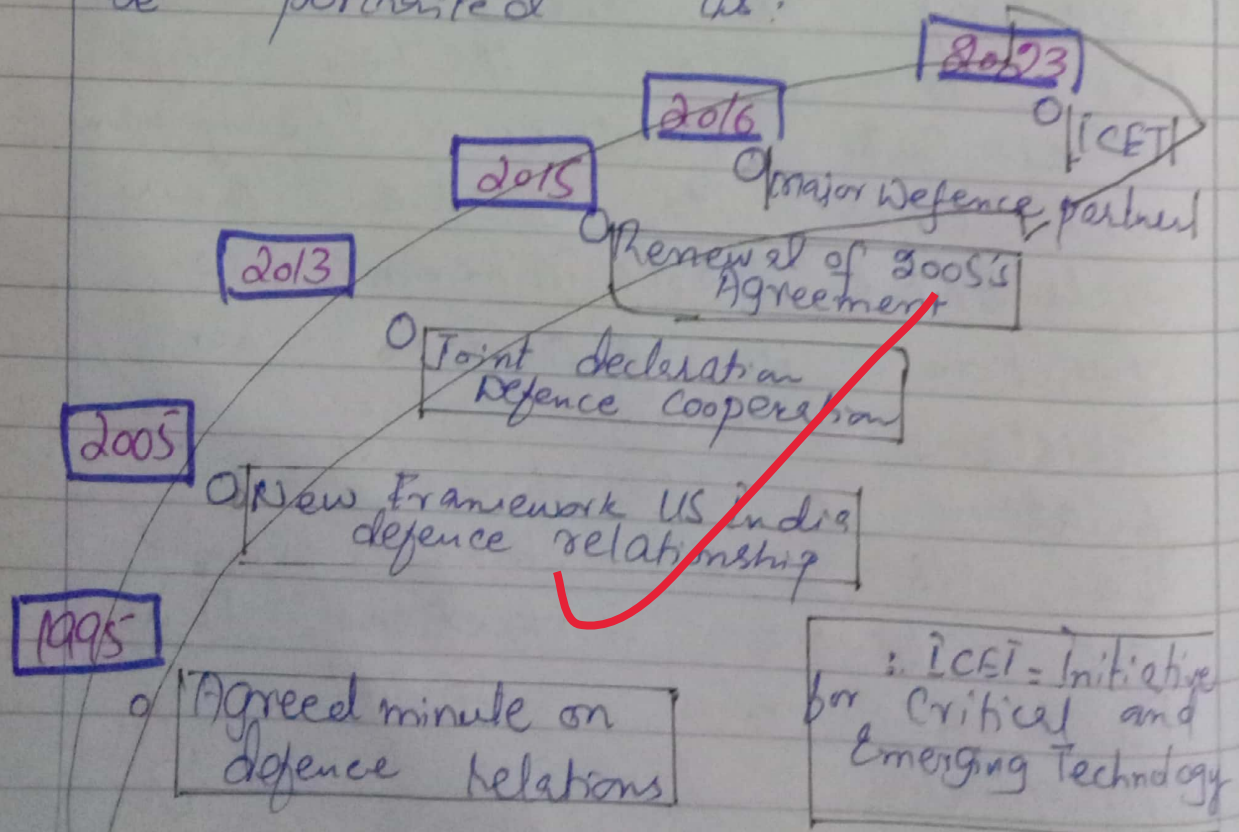 be as:
2023
ICET
2016
major Defence partner
2015
Renewal of 2005's
Agreement
2013
Joint declaration
Defence cooperation
2005
New Framework US india
defence relationship
1995
Agreed minute on
defence Relations
: ICET = Initiative
for Critical and
Emerging Technology